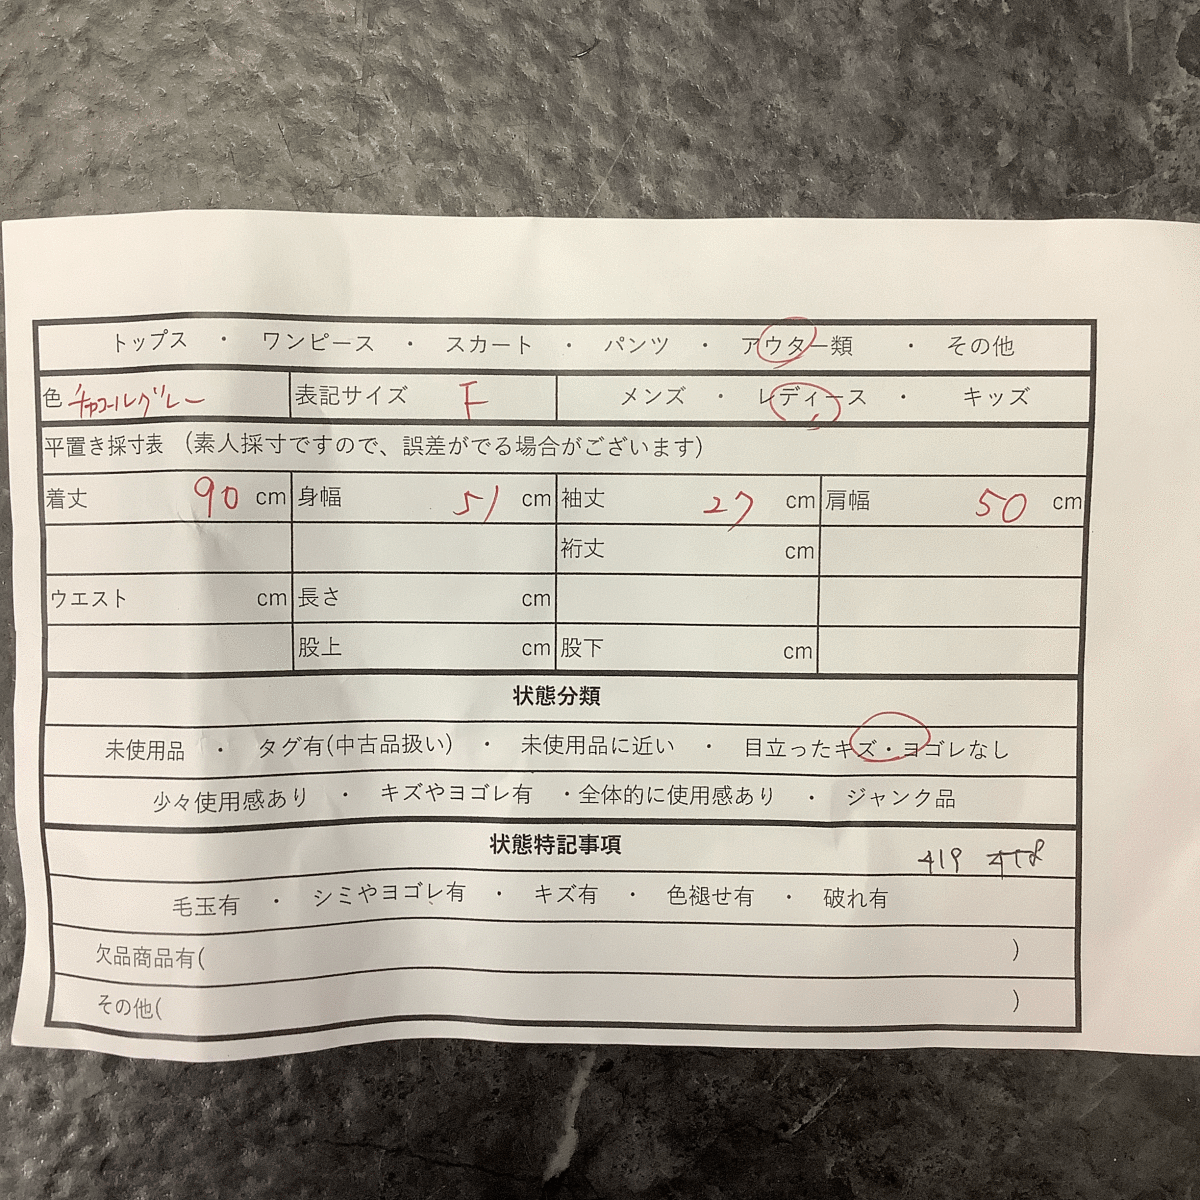 トップス ・ ワンピース ・ スカート ・ パンツ ・ アウター類 ・ その他
色 チャコールグレー 表記サイズ F メンズ ・ レディース ・ キッズ
平置き採寸表 (素人採寸ですので、誤差がでる場合がございます)
着丈 90 cm 身幅 51 cm 袖丈 27 cm 肩幅 50 cm
裄丈 cm
ウエスト cm 長さ cm
股上 cm 股下 cm
状態分類
未使用品 ・ タグ有(中古品扱い) ・ 未使用品に近い ・ 目立ったキズ・ヨゴレなし
少々使用感あり ・ キズやヨゴレ有 ・全体的に使用感あり ・ ジャンク品
状態特記事項 419
毛玉有 ・ シミやヨゴレ有 ・ キズ有 ・ 色褪せ有 ・ 破れ有
欠品商品有( )
その他( )